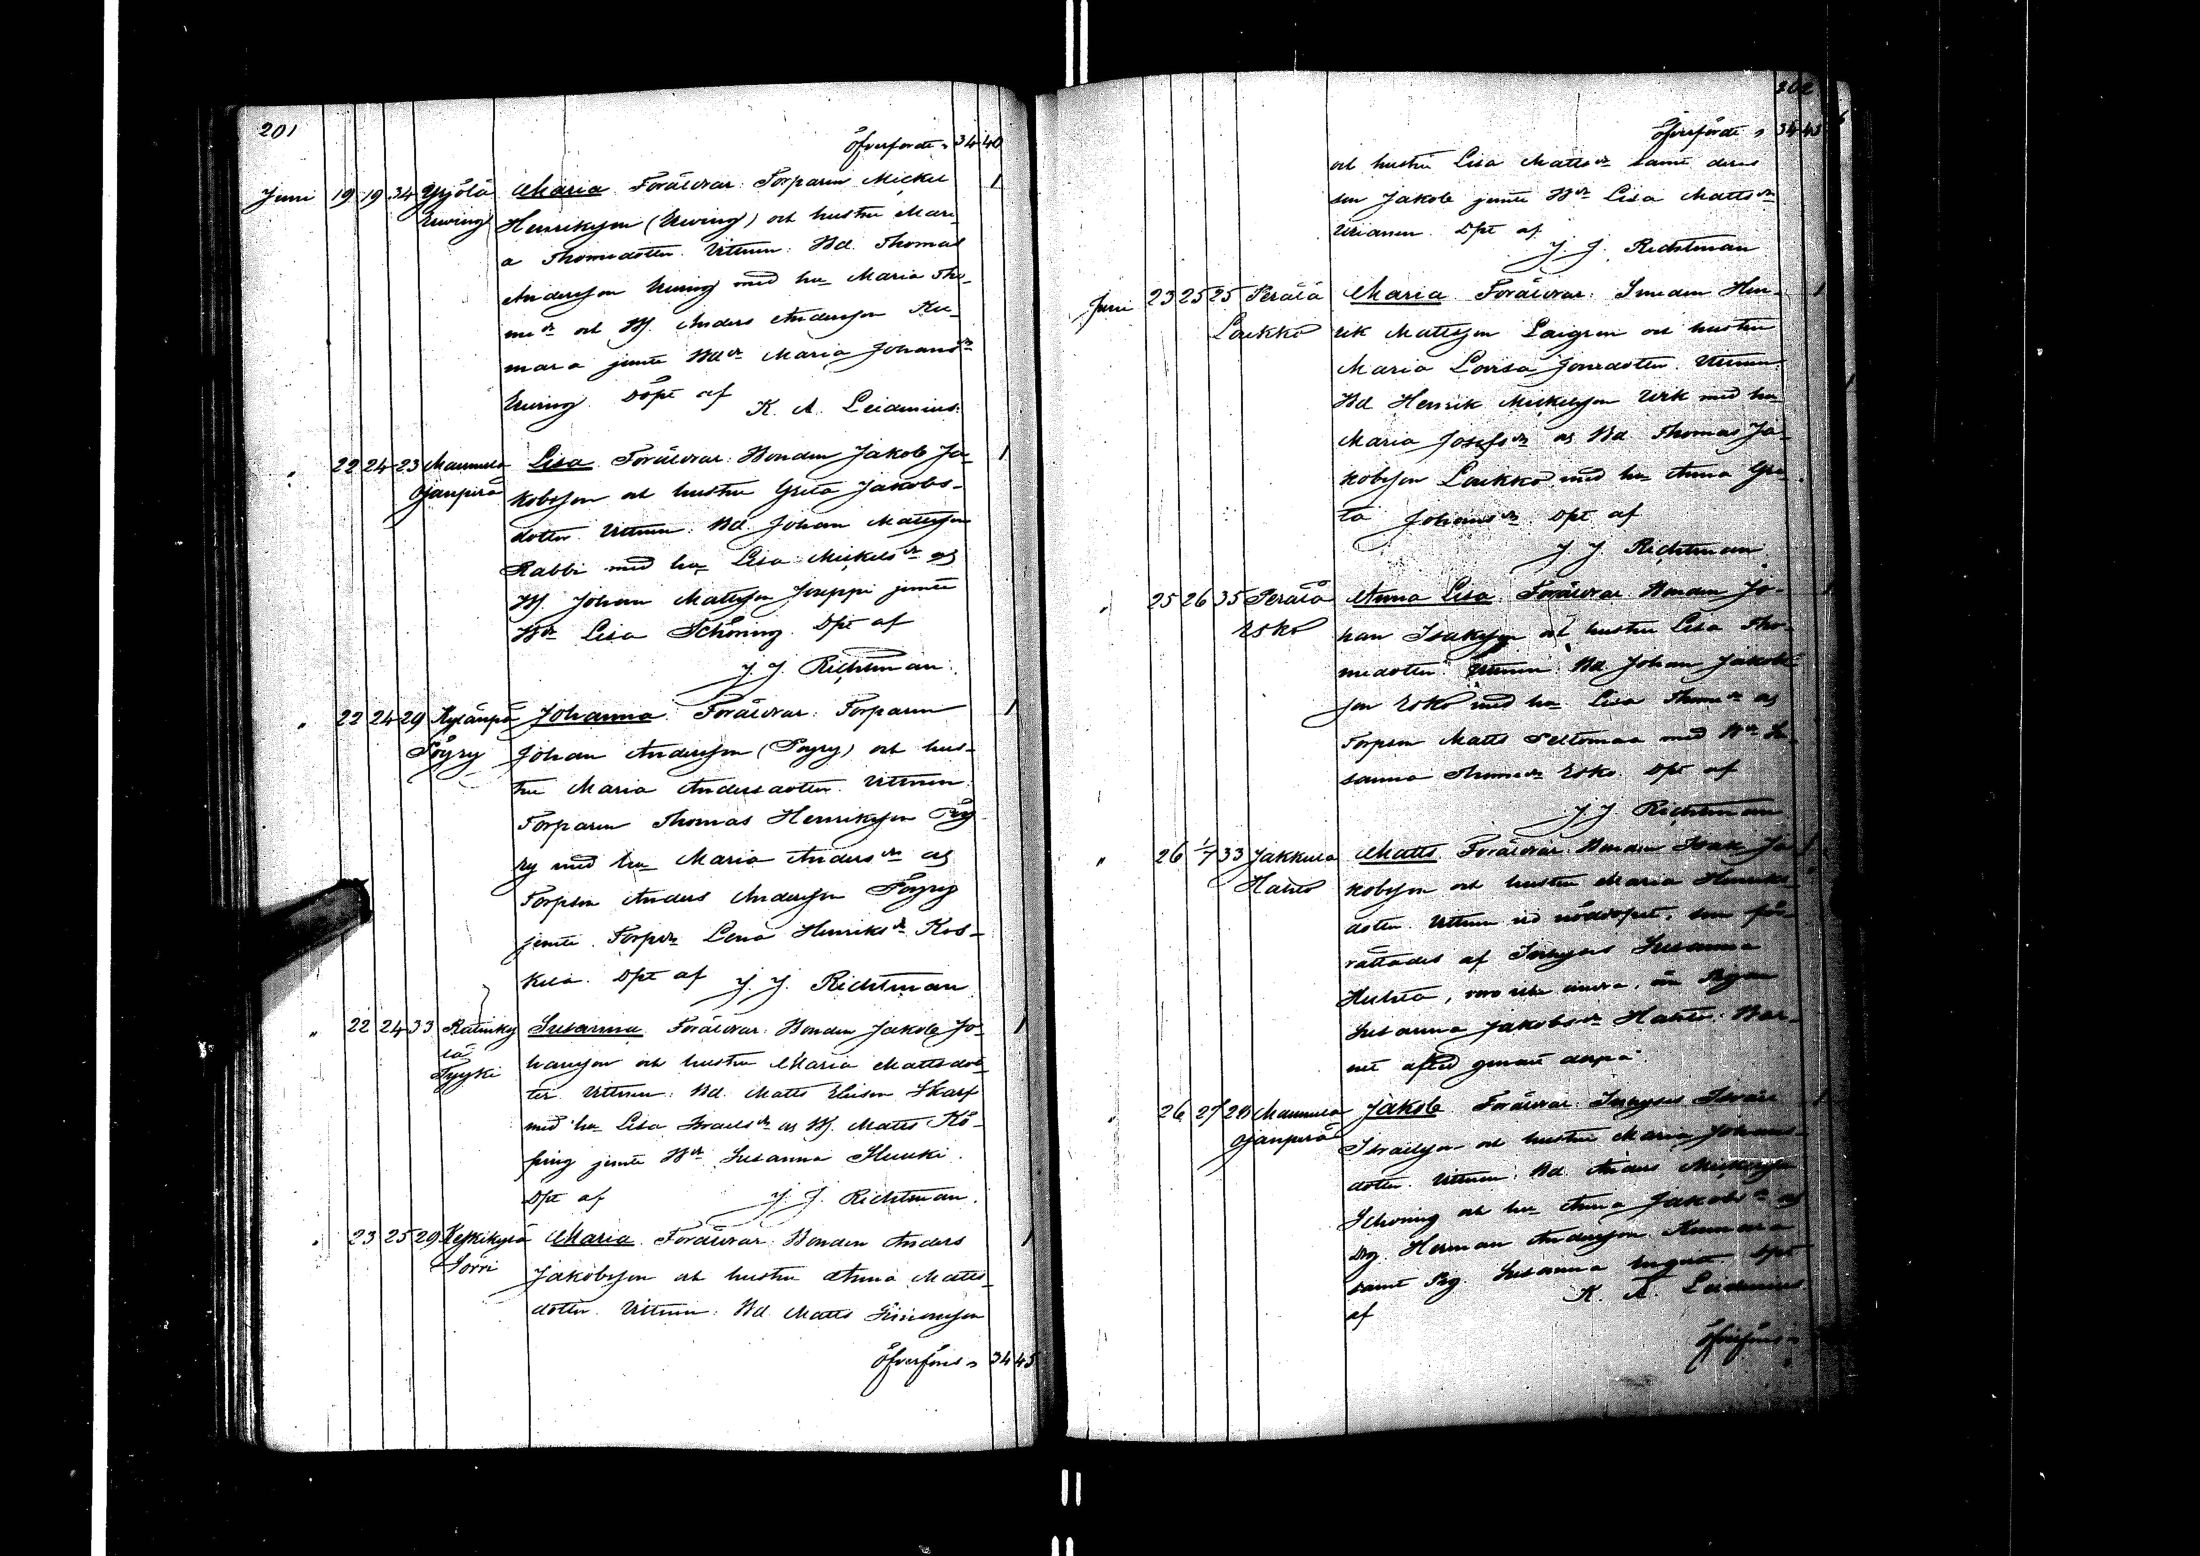 201
Öfverförde » 34 40
Juni 19 19 34 Yrjölä Maria Föräldrar: Torparen Mickel 1
Uuring Henriksson (Uuring) och hustru Mari-
a Thomædotter. Vittnen: Bd. Thomas
Andersson Uuring med hu Maria Tho-
mædr och Dr. Anders Andersson Ku-
mara jemte Bdr Maria Johansdr
Uuring. Döpt af K. A. Leidenius.
" 22 24 23 Maunula Lisa Föräldrar: Bonden Jakob Ja- 1
Ojanperä kobsson och hustru Greta Jakobs-
dotter. Vittnen: Bd. Johan Mattsson
Rabbi med hu Lisa Mickelsdr og
Johan Mattsson Joseppi jemte
Lisa Schöring. Dpt af
J. J. Richtman.
" 22 24 29 Kylänpä Johanna Föräldrar: Torparen 1
Pöyry Johan Andersson (Pöyry) och hus-
tru Maria Andersdotter. Vittnen:
Torparen Thomas Henriksson Pöy-
ry med hu Maria Andersdr og
Torpson Anders Andersson Pöyry
jemte Torpdr Lena Henriksdr Kos-
kela. Dpt af J. J. Richtman
" 22 24 33 Rutinky Susanna Föräldrar: Bonden Jakob Jo- 1
lä hansson och hustru Maria Mattsdot-
Tyyki ter. Vittnen: Bd. Matts Elison Skarp
med hu Lisa Israelsdr og Matts Kö-
ping jemte Bdr Susanna
Dpt af J. J. Richtman.
" 23 25 29 Keskikylä Maria Föräldrar: Bonden Anders 1
Sorri Jakobsson och hustru Anna Matts-
dotter. Vittnen: Bd. Matts Simonsson
Öfverföres » 34 45
202
Öfverförde » 34 45
och hustru Lisa Mattsdr samt deras
son Jakob jemte Bdr Lisa Mattsdr
Dpt af
J. J. Richtman
Juni 23 25 25 Perälä Maria Föräldrar: Smeden Hen- 1
Laukko rik Mattsson Laigren och hustru
Maria Lovisa Jonædotter. Vittnen:
Bd. Henrik Mickelsson med hu
Maria Josefsdr og Bd. Thomas Ja-
kobsson Laukko med hu Anna Gre-
ta Johansdr Dpt af
J. J. Richtman
" 25 26 35 Perälä Anna Lisa Föräldrar: Bonden Jo- 1
Esko han Isaksson och hustru Lisa Tho-
mædotter. Vittnen: Bd. Johan Jakobs-
son Esko med hu Lisa Thomædr og
Torpson Matts Peltomaa med Bdr Su-
sanna Thomædr Esko. Dpt af
J. J. Richtman
" 26 1/7 33 Jakkula Matts Föräldrar: Bonden Isak Ja- 1
Hahto kobsson och hustru Maria Henriks-
dotter. Vittnen vid nöddopet, som för-
rättades af Susanna
voro icke andra, än Pigan
Susanna Jakobsdr Hahto. Bar-
net afled genast derpå.
" 26 27 28 Maunula Jakob Föräldrar: Israel 1
Ojanperä Israelsson och hustru Maria Johans-
dotter. Vittnen: Bd. Anders Mickelsson
Schöring och hu Anna Jakobsdr og
Drg. Herman Andersson Kummara
samt Pig. Susanna Dpt
af K. A. Leidenius
Öfverföres »